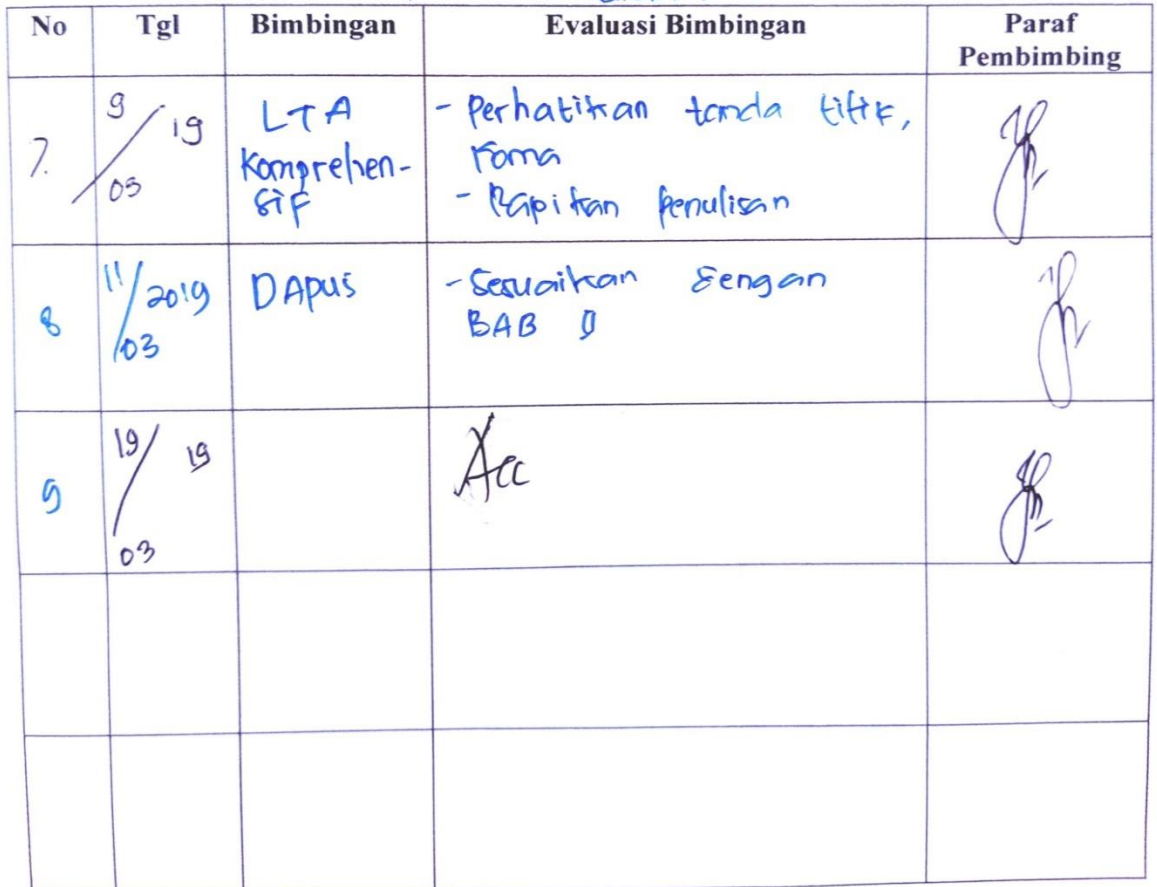 No Tgl Bimbingan Evaluasi Bimbingan Paraf Pembimbing
7. 9/03 19 LTA Komprehen-sif - Perhatikan tanda titik, koma
- Rapikan penulisan
8 11/03 2019 DAPUS - Sesuaikan dengan BAB II
9 19/03 19 Acc